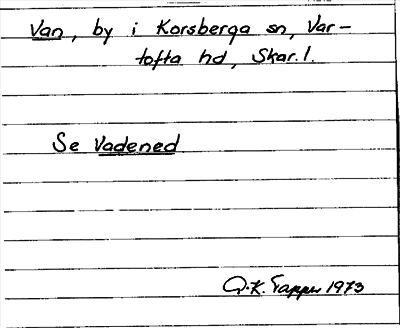 Van, by i Korsberga sn, Var-
tofta hd, Skar. l.
Se Vadened
K. Tapper 1973